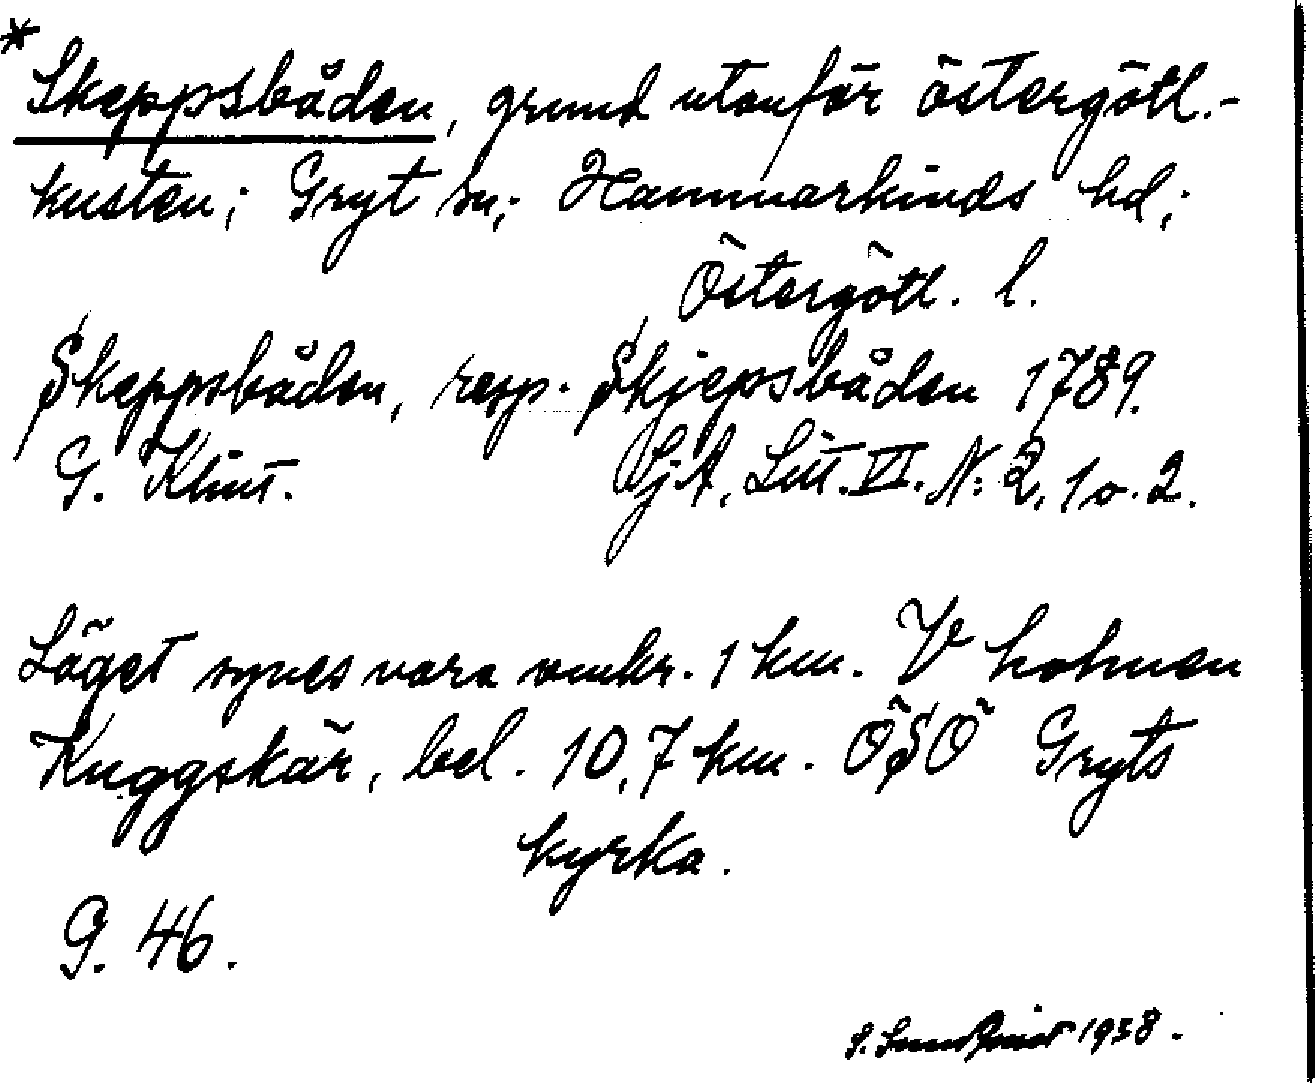 *
Skeppsbåden, grund utanför östergötl.-
kusten; Gryt sn; Hammarkinds hd;
Östergötl. l.
Skeppsbåden, resp. Skjepsbåden 1789.
G. Klint. SjA, Litt. VI. N: 2, 1 o. 2.
Läget synes vara omkr. 1 km. V holmen
Kuggskär, bel. 10,7 km. ÖSÖ Gryts
kyrka.
G. 46.
S. 1938.